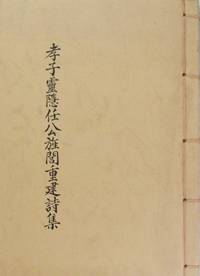 孝子靈隱任公旌閭重建詩集